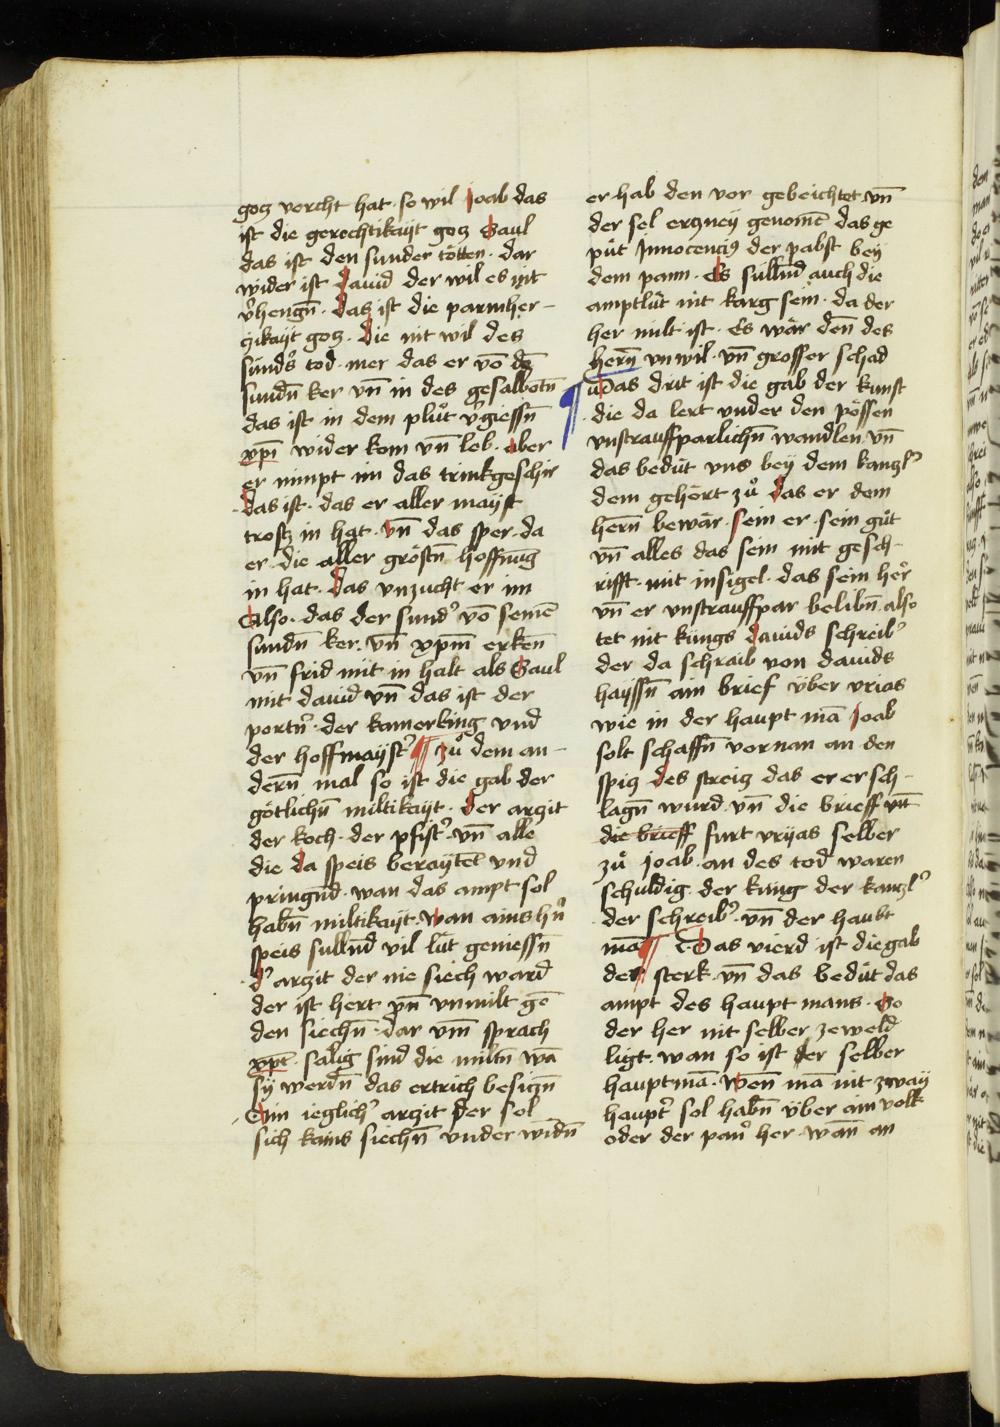 gotz vorcht hat · so wil Joab das
ist die gerechtikayt gotz Saul
das ist den sunder tötten · dar
wider ist dauid der wil es nit
v̓hengn̄ · das ist die parmher-
zikayt gotz · die nit wil des
sunds̓ tod · mer das er vō dē
sundn̄ ker vn̄ in des gesalbotn̄
das ist in dem plůt v̓giessn̄
xp̄i wider kom vn̄ leb · aber
er nimpt im das trinkgeschir
das ist · das er aller mayst
trostz in hat · vn̄ das sper · da
er · die aller gröstn̄ hoffnūg
in hat · das vnzucht er im
Also · das der sund̓ vō seinē
sundn̄ ker · vn̄ xp̄m erken̄
vn̄ frid mit in halt als Saul
mit dauid vn̄ das ist der
portn̓ · der kamerking vnd
der hoffmayst̓ ¶ zů dem an-
dern̄ mal so ist die gab der
götlichn̄ miltikayt · der arzit
der koch · der pfist̓ · vn̄ alle
die da speis beraytent vnd
pringnd · wan das ampt sol
habn̄ miltikayt · wan ains hn̓
speis sullnd vil lüt geniessn̄
d̓ arzit der nie siech ward
der ist hert vn̄ vnmilt gē
den siechn̄ · dar vm̄ sprach
xp̄c · salig sind die miltn̄ wā
sy werdn̄ das ertrich besizn̄
Ain ieglich̓ arzit der sol
sich kains siechn̄ vnder windn̄
er hab den vor gebeichtet vn̄
der sel erzney genomē das ge
püt Innocencius der pabst bey
dem pann · Es sullnd auch die
amptlüt nit karg sein · da der
her milt ist · Es wär den̄ des
hern̄ vnwil · vn̄ grosser schad
¶ Das drit ist die gab der kunst
die da lert vnder den pössen
vnstraffparlichn̄ wandlen vn̄
das bedüt vns bey dem kanzl̓
dem gehört zů das er dem
hern̄ bewar · sein er · sein gůt
vn̄ alles das sein mit gesch-
rifft · mit insigel · das sein her̓
vn̄ er vnstrauffpar belibn̄ also
tet nit küngs dauids schreib̓
der da schraib von dauids
hayssn̄ ain brief über vrias
wie in der haupt mā Joab
solt schaffn̄ vornan an den
spiz des streiz das er er sch-
lagn̄ wurd · vn̄ die brieff vn̄
die brieff furt vrijas selber
zů joab · an des tod waren
schuldig · der kung der kanzl̓
der schreib̓ · vn̄ der haubt
mā ¶ Das vierd ist die gab
der sterk · vn̄ das bedüt das
ampt des haupt mans · So
der her nit selber zeweld
ligt · wan so ist der selber
hauptmā · wen̄ mā nit zway
haupt̓ sol habn̄ über ain volk
oder der pan̓ her · wan̄ an